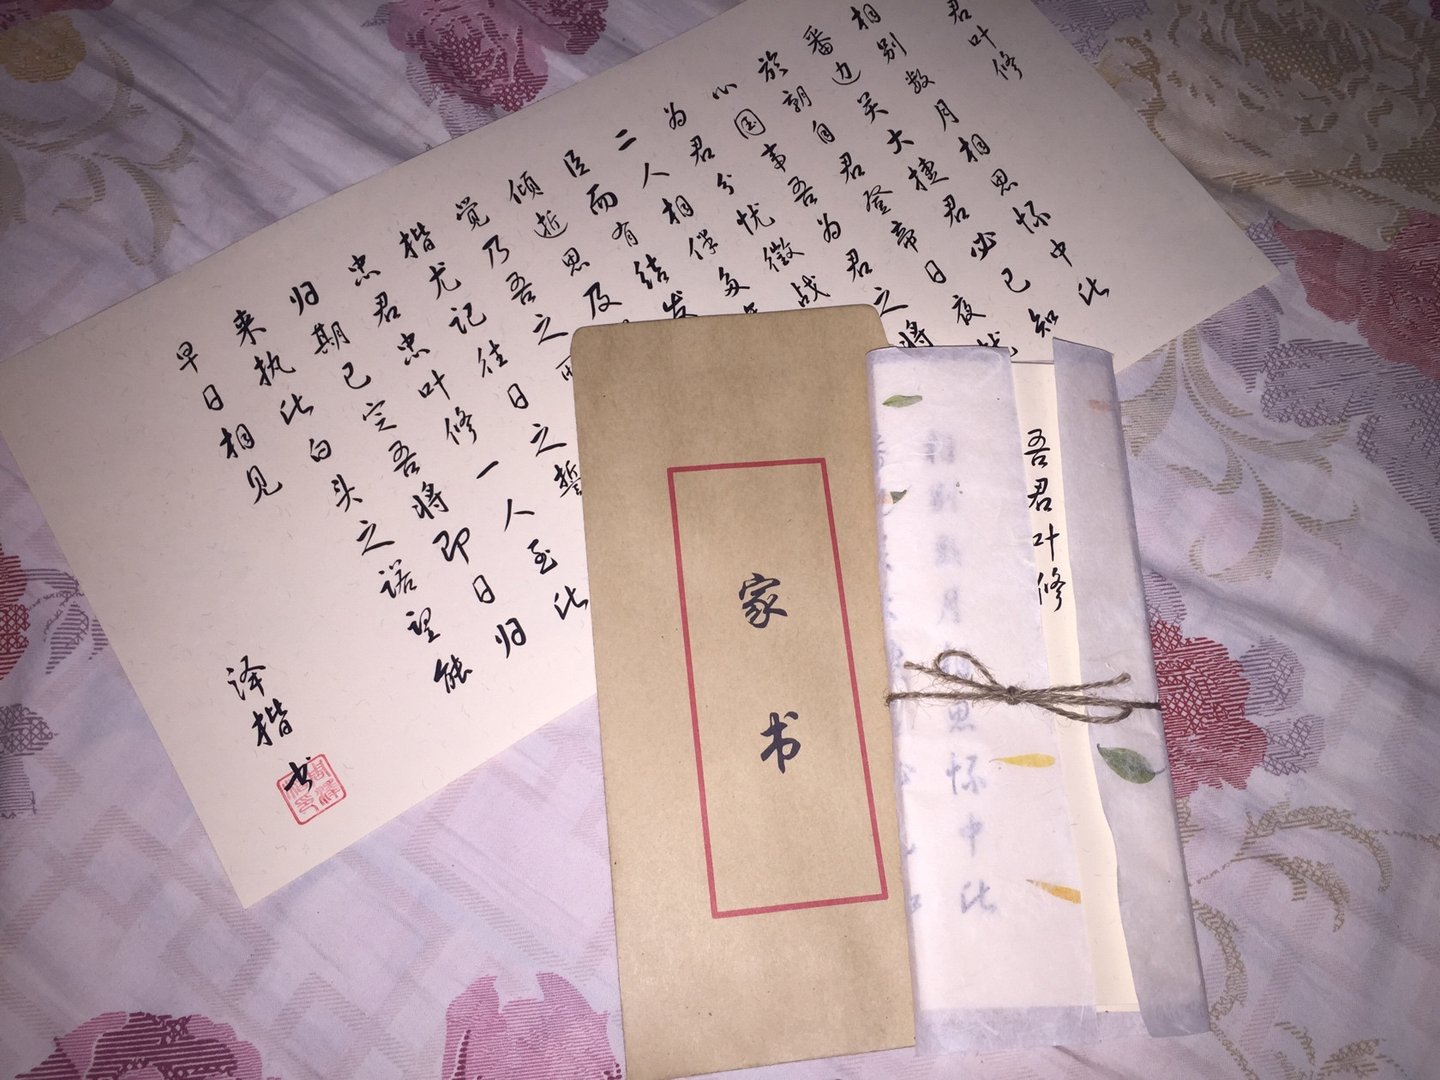 君叶修
相别数月相思怀中此
番边关大捷君必已知
於朝自君登帝日夜
心国事吾为君之将
为君分忧徵战
二人相伴多
臣而有结发
倾逝思及
觉乃吾之
楷尤记往日之誓
忠君忠叶修一人至此
归期已定吾将即日归
来执此白头之诺望能
早日相见
泽楷书
家书
吾君叶修